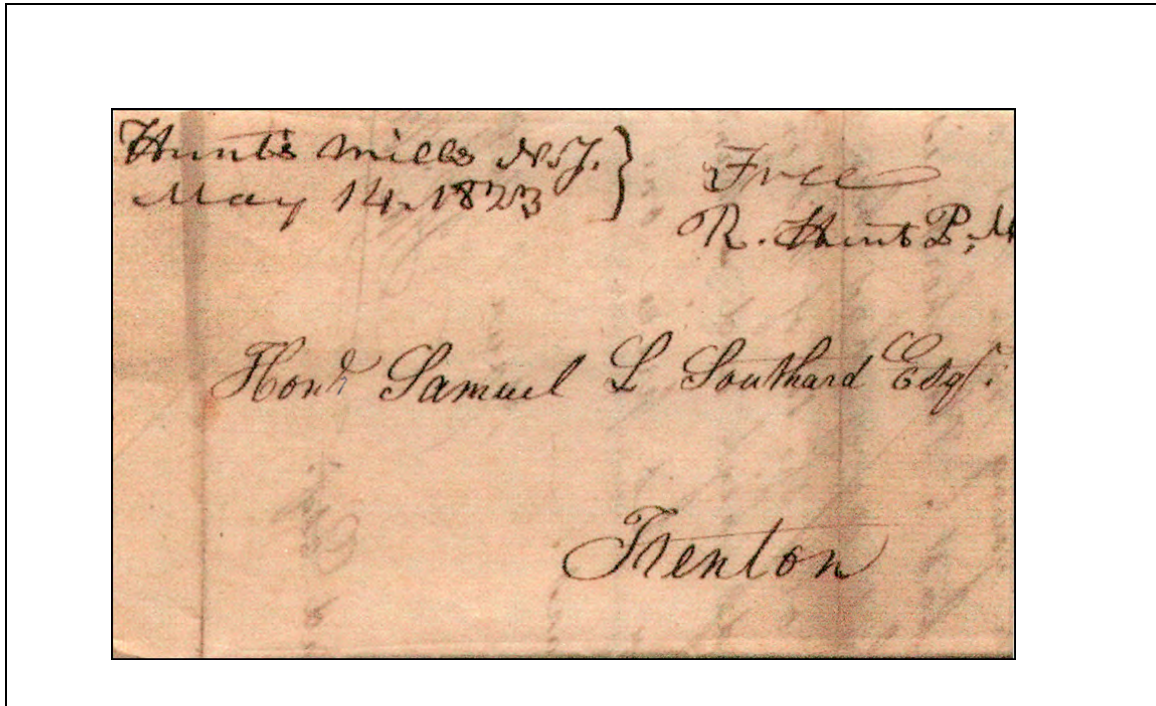 Hunt's Mills N.J. }
May 14. 1823
Free
R. Hunt P. M
Honᵈ Samuel L Southard Esqʳ.
Trenton